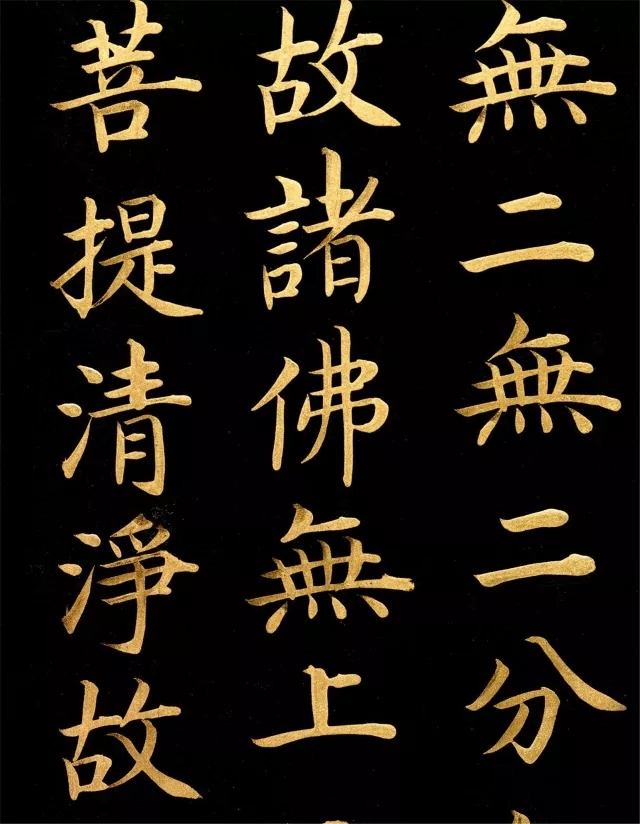 無二無二分
故諸佛無上
菩提清淨故